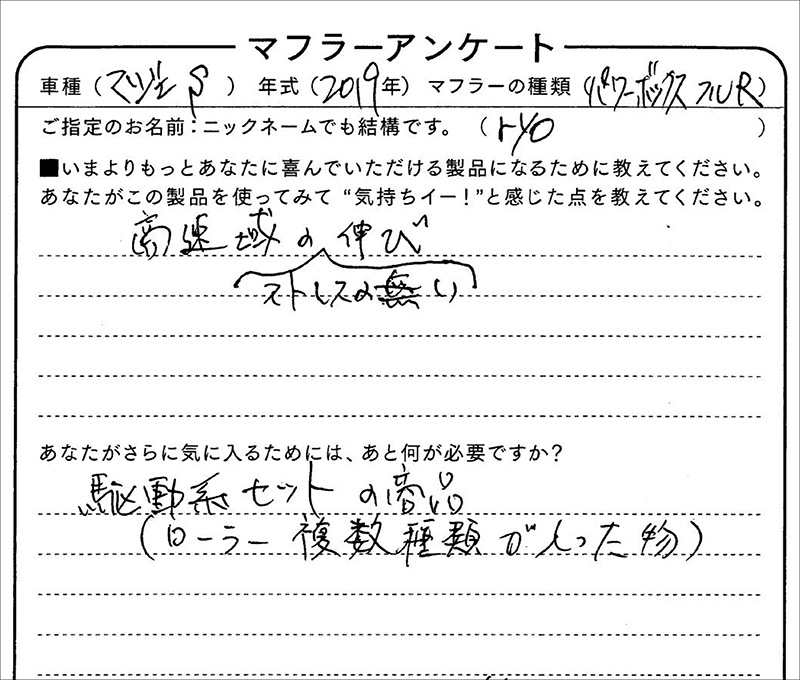 マフラーアンケート
車種（マジェS） 年式（2019年） マフラーの種類（パワーボックス フルR）
ご指定のお名前：ニックネームでも結構です。（ryo）
■いまよりもっとあなたに喜んでいただける製品になるために教えてください。
あなたがこの製品を使ってみて“気持ちイー！”と感じた点を教えてください。
高速域の伸び
ストレスの無い
あなたがさらに気に入るためには、あと何が必要ですか？
駆動系セットの商品
（ローラー複数種類が入った物）